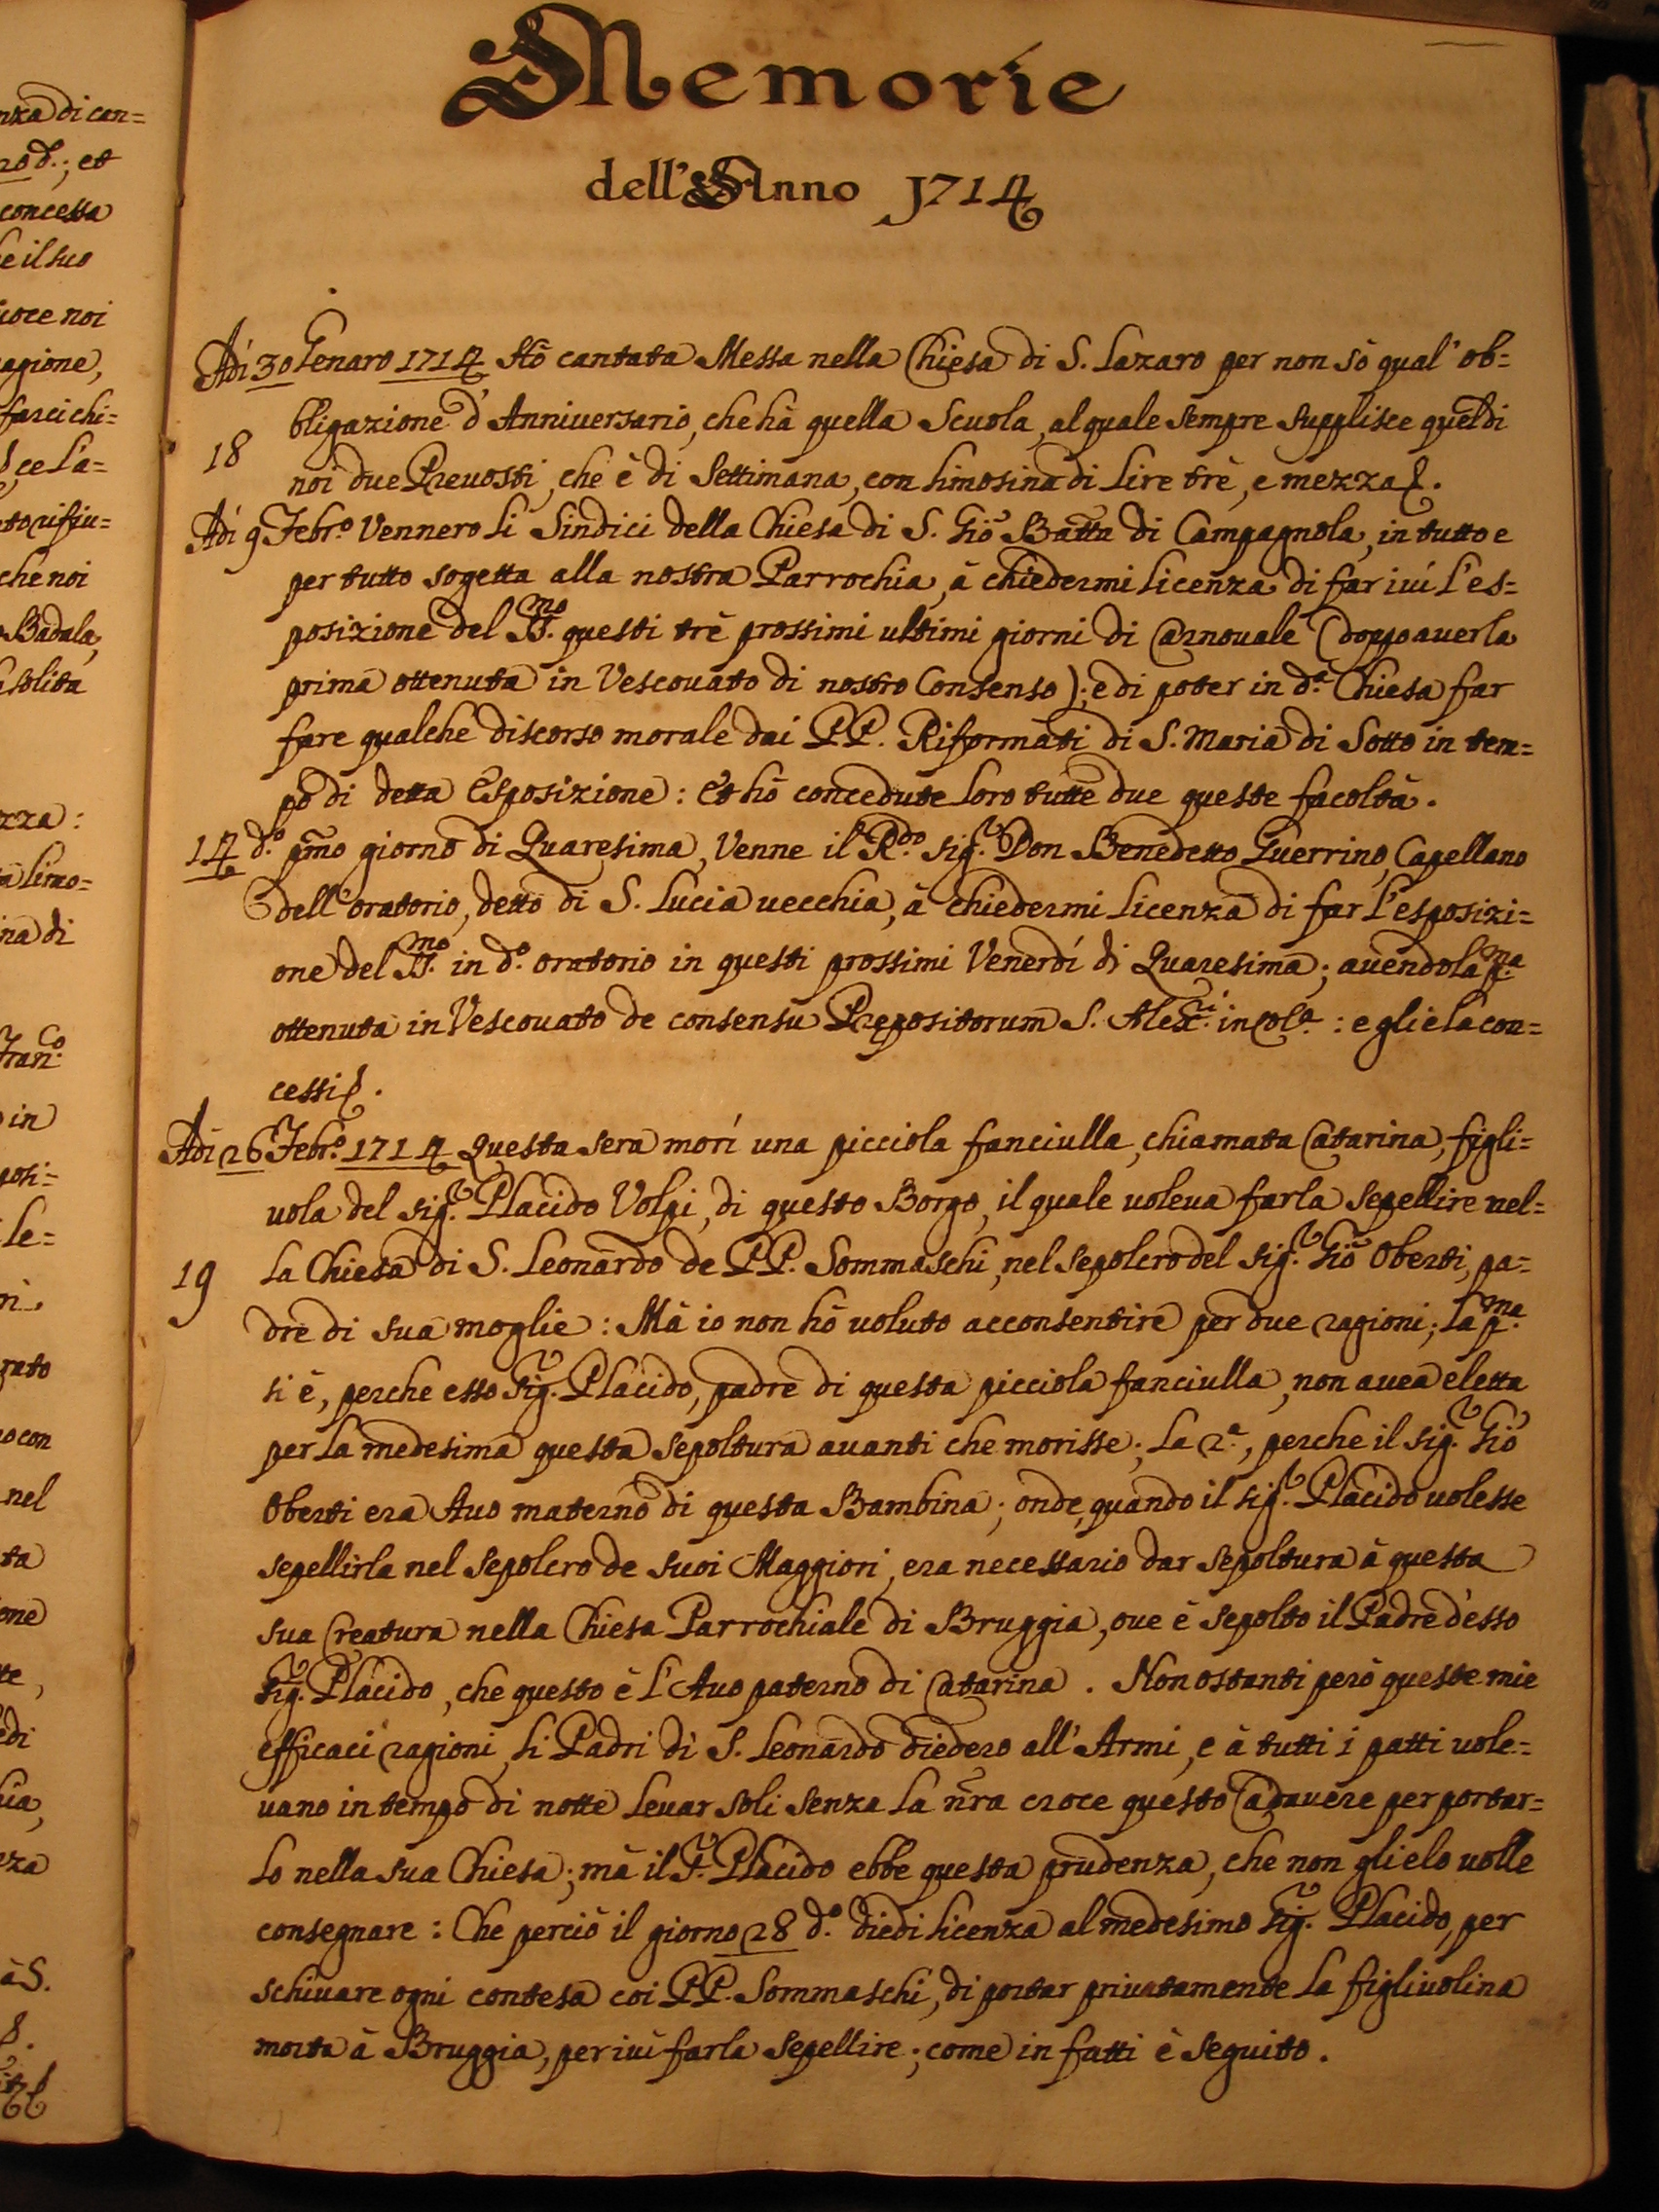 nza di can=
no d.; et
concessa
e il suo
uoce noi
agione,
farci chi=
ce l'a=
to rifiu=
che noi
Badala,
solita
zza:
a limo=
ina di
Fran.co
in
posi=
le=
rato
o con
nel
ta
one
te,
edi
ia,
zza
à S.
Memorie
dell'Anno 1714
Adì 30 Genaro 1714 Hò cantata Messa nella Chiesa di S. Lazaro per non sò qual' ob=
bligazione d'Anniuersario, che hà quella Scuola, al quale sempre supplisce quel di
18
noi due Preuosti, che è di Settimana, con limosina di Lire trè, e mezza &.
Adì 9 Febr.o Vennero li Sindici della Chiesa di S. Giõ Batta di Campagnola, in tutto e
per tutto sogetta alla nostra Parrochia, à chiedermi licenza di far iuì l'es=
posizione del SS.mo questi trè prossimi ultimi giorni di Carnouale (doppo auerla
prima ottenuta in Vescouato di nostro Consenso); e di poter in d.a Chiesa far
fare qualche discorso morale dai PP. Riformati di S. Maria di Sotto in tem=
po di detta Esposizione: Et hò concedute loro tutte due queste facoltà.
14 d.o pmo giorno di Quaresima, Venne il R.do sig.r Don Benedetto Guerrino, Capellano
dell'oratorio, detto di S. Lucia uecchia, à chiedermi licenza di far l'esposizi=
one del SS.mo in d.o oratorio in questi prossimi Venerdí di Quaresima; auendola p.ma
ottenuta in Vescouato de consensu Prepositorum S. Alex.ri in Col.a: e gliela con=
cessi &.
Adì 26 Febr.o 1714 Questa sera morí una picciola fanciulla, chiamata Catarina, figli=
uola del sig.r Placido Volpi, di questo Borgo, il quale uoleua farla sepellire nel=
la Chiesa di S. Leonardo de PP. Sommaschi, nel sepolcro del sig.r Giõ Oberti, pa=
19
dre di sua moglie: Mà io non hò uoluto acconsentire per due ragioni; la p.ma
si è, perche esso sig.r Placido, padre di questa picciola fanciulla, non auea eletta
per la medesima questa sepoltura auanti che morisse; la 2.a, perche il sig.r Giõ
Oberti era Auo materno di questa Bambina; onde, quando il sig.r Placido uolesse
sepellirla nel sepolcro de suoi Maggiori, era necessario dar sepoltura à questa
sua Creatura nella Chiesa Parrochiale di Bruggia, oue è sepolto il Padre d'esso
sig.r Placido, che questo è l'Auo paterno di Catarina. Non ostanti però queste mie
efficaci ragioni, li Padri di S. Leonardo diedero all'Armi, e à tutti i patti uole=
uano in tempo di notte leuar soli senza la nra croce questo Cadauere per portar=
lo nella sua Chiesa; mà il S.r Placido ebbe questa prudenza, che non glielo uolle
consegnare: Che perciò il giorno 28 d.o diedi licenza al medesimo sig.r Placido, per
schiuare ogni contesa coi PP. Sommaschi, di portar priuatamente la figliuolina
morta à Bruggia, per iuì farla sepellire; come in fatti è seguito.